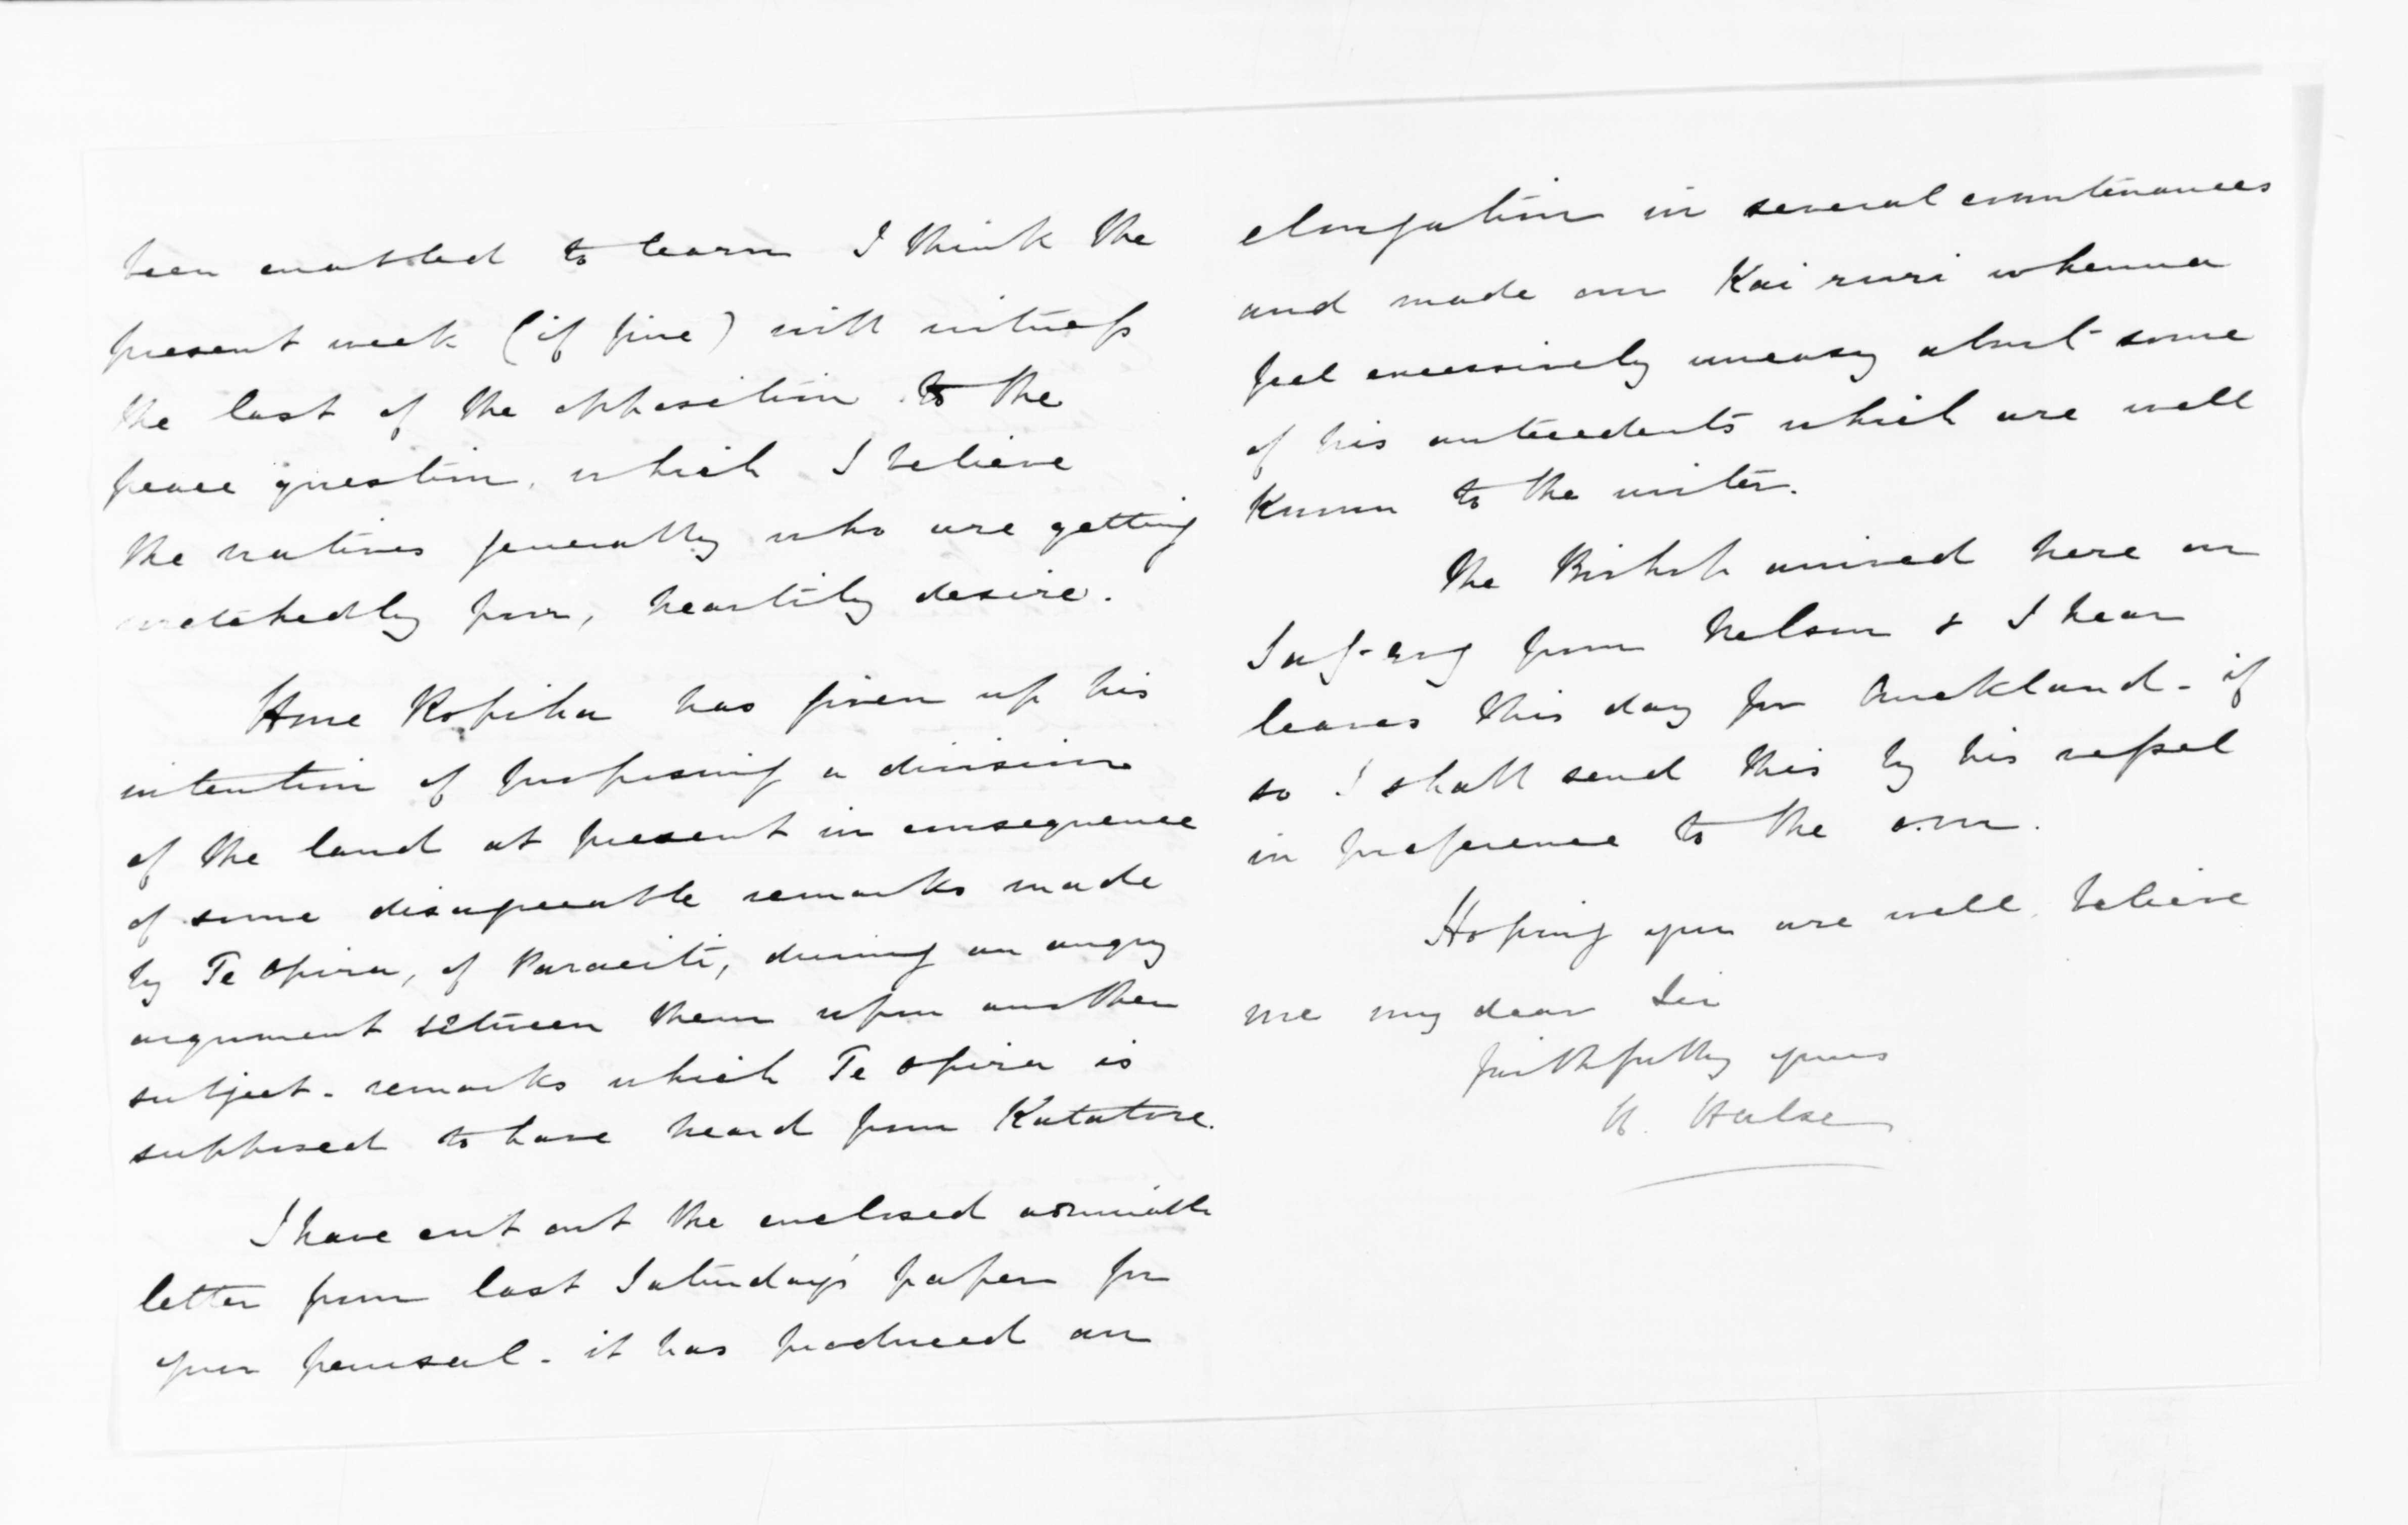 been enabled to learn I think the
present week (if fine) will witness
the last of the opposition to the
peace question, which I believe
the natives generally who are getting
wretchedly poor, heartily desire.
Hone Ropiha has given up his
intention of proposing a division
of the land at present in consequence
of some disagreeable remarks made
by Te Opira, of Paraiti, during an angry
argument between them upon another
subject - remarks which Te Opira is
supposed to have heard from Katatore.
I have cut out the enclosed admirable
letter from last Saturday's paper for
your perusal - it has produced an
elongation in several countenances
and made our Kai ruri whenua
feel excessively uneasy about some
of his antecedents which are well
known to the writer.
The Bishop arrived here on
from Nelson & I hear
leaves this day for Auckland - if
so I shall send this by his vessel
in preference to the o.m.
Hoping you are well, believe
me my dear Sir
faithfully yours
H. Halse